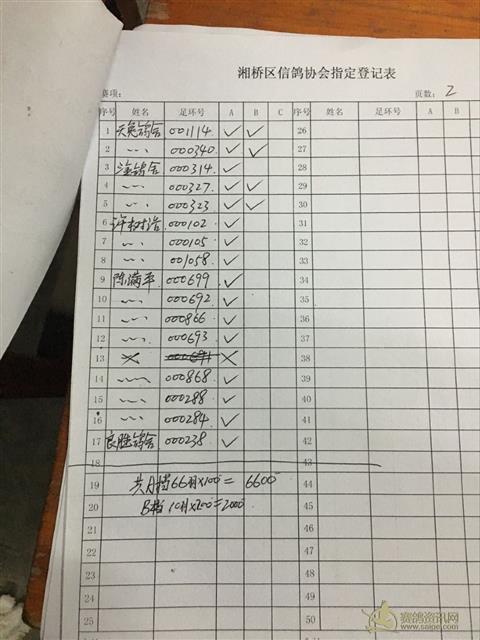 湘桥区信鸽协会指定登记表
赛项： 页数： 2
序号 姓名 足环号 A B C 序号 姓名 足环号 A B
1 天奥鸽舍 001114 ✓ ✓ 26
2 〃 000340 ✓ ✓ 27
3 鸽舍 000314 ✓ 28
4 〃 000327 ✓ ✓ 29
5 〃 000323 ✓ ✓ 30
6 许树浩 000102 ✓ 31
7 〃 000105 ✓ 32
8 〃 001058 ✓ 33
9 陈满平 000699 ✓ 34
10 〃 000692 ✓ 35
11 〃 000866 ✓ 36
12 〃 000693 ✓ 37
13 × × 38
14 〃 000868 ✓ 39
15 〃 000288 ✓ 40
16 〃 000284 ✓ 41
17 良胜鸽舍 000238 ✓ 42
18 43
19 共A档66羽×100= 6600 44
20 B档 10羽×200=2000 45
21 46
22 47
23 48
24 49
25 50
赛鸽资讯网
www.saige.com